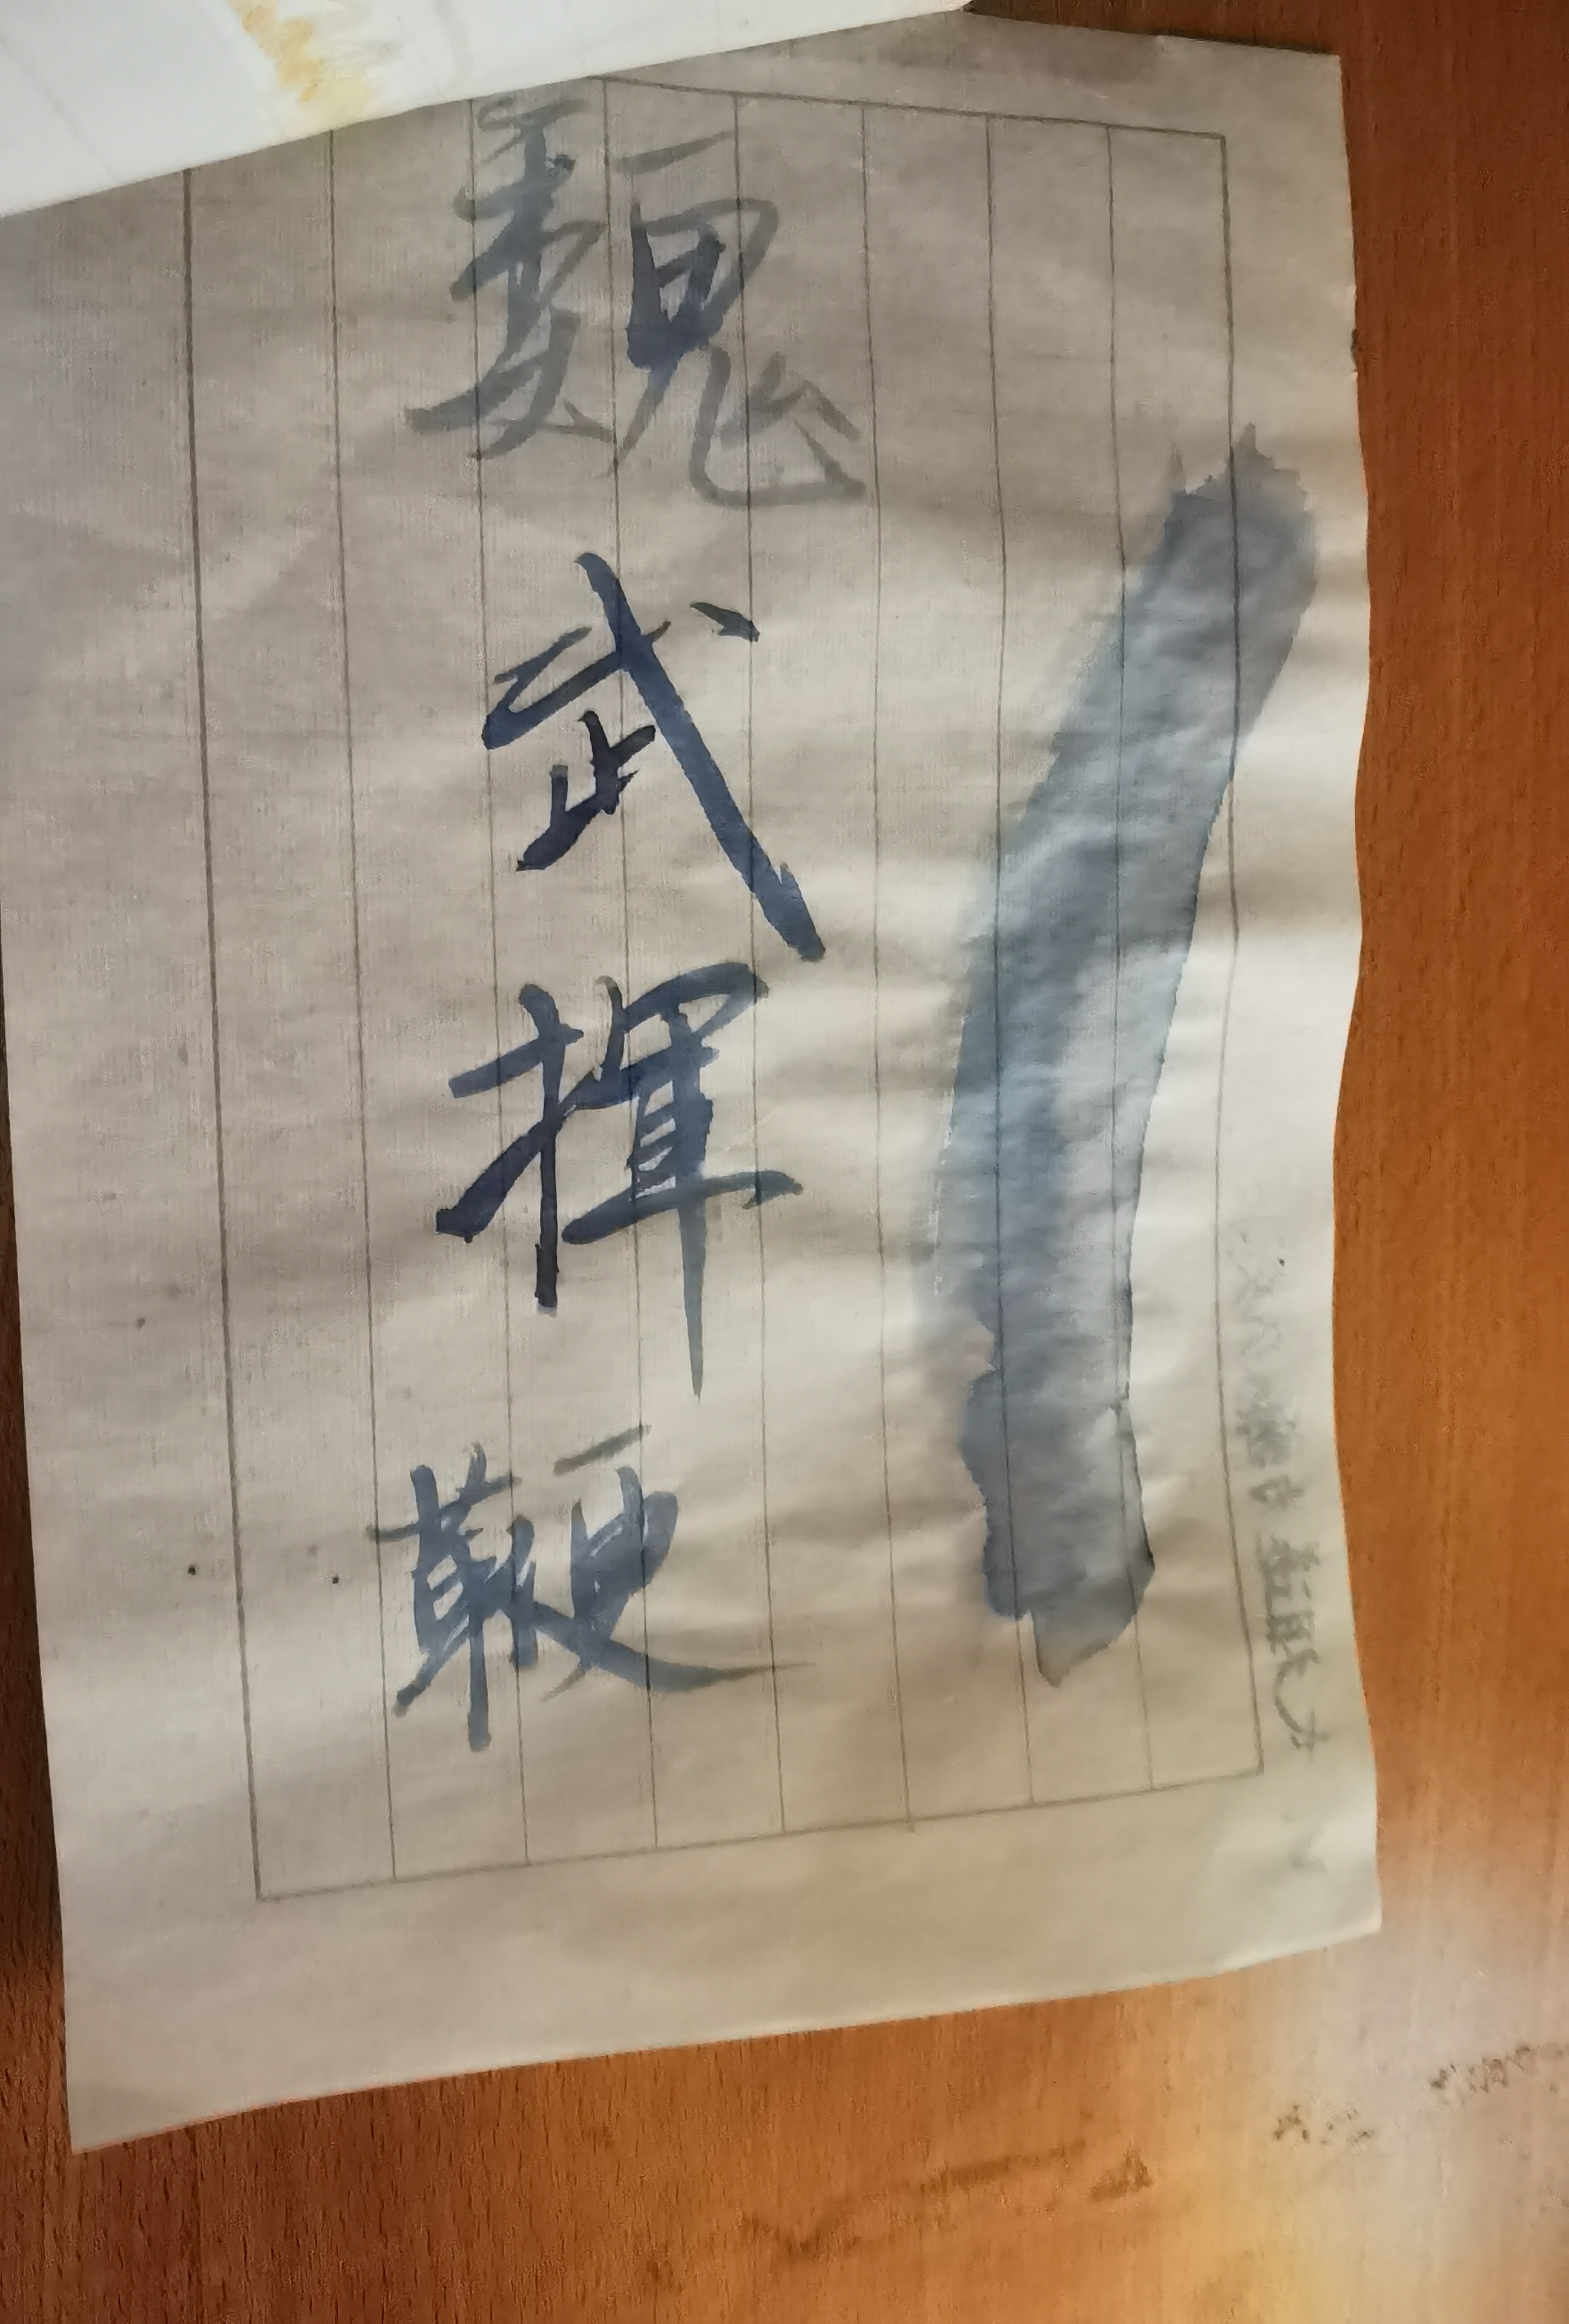 魏武揮鞭